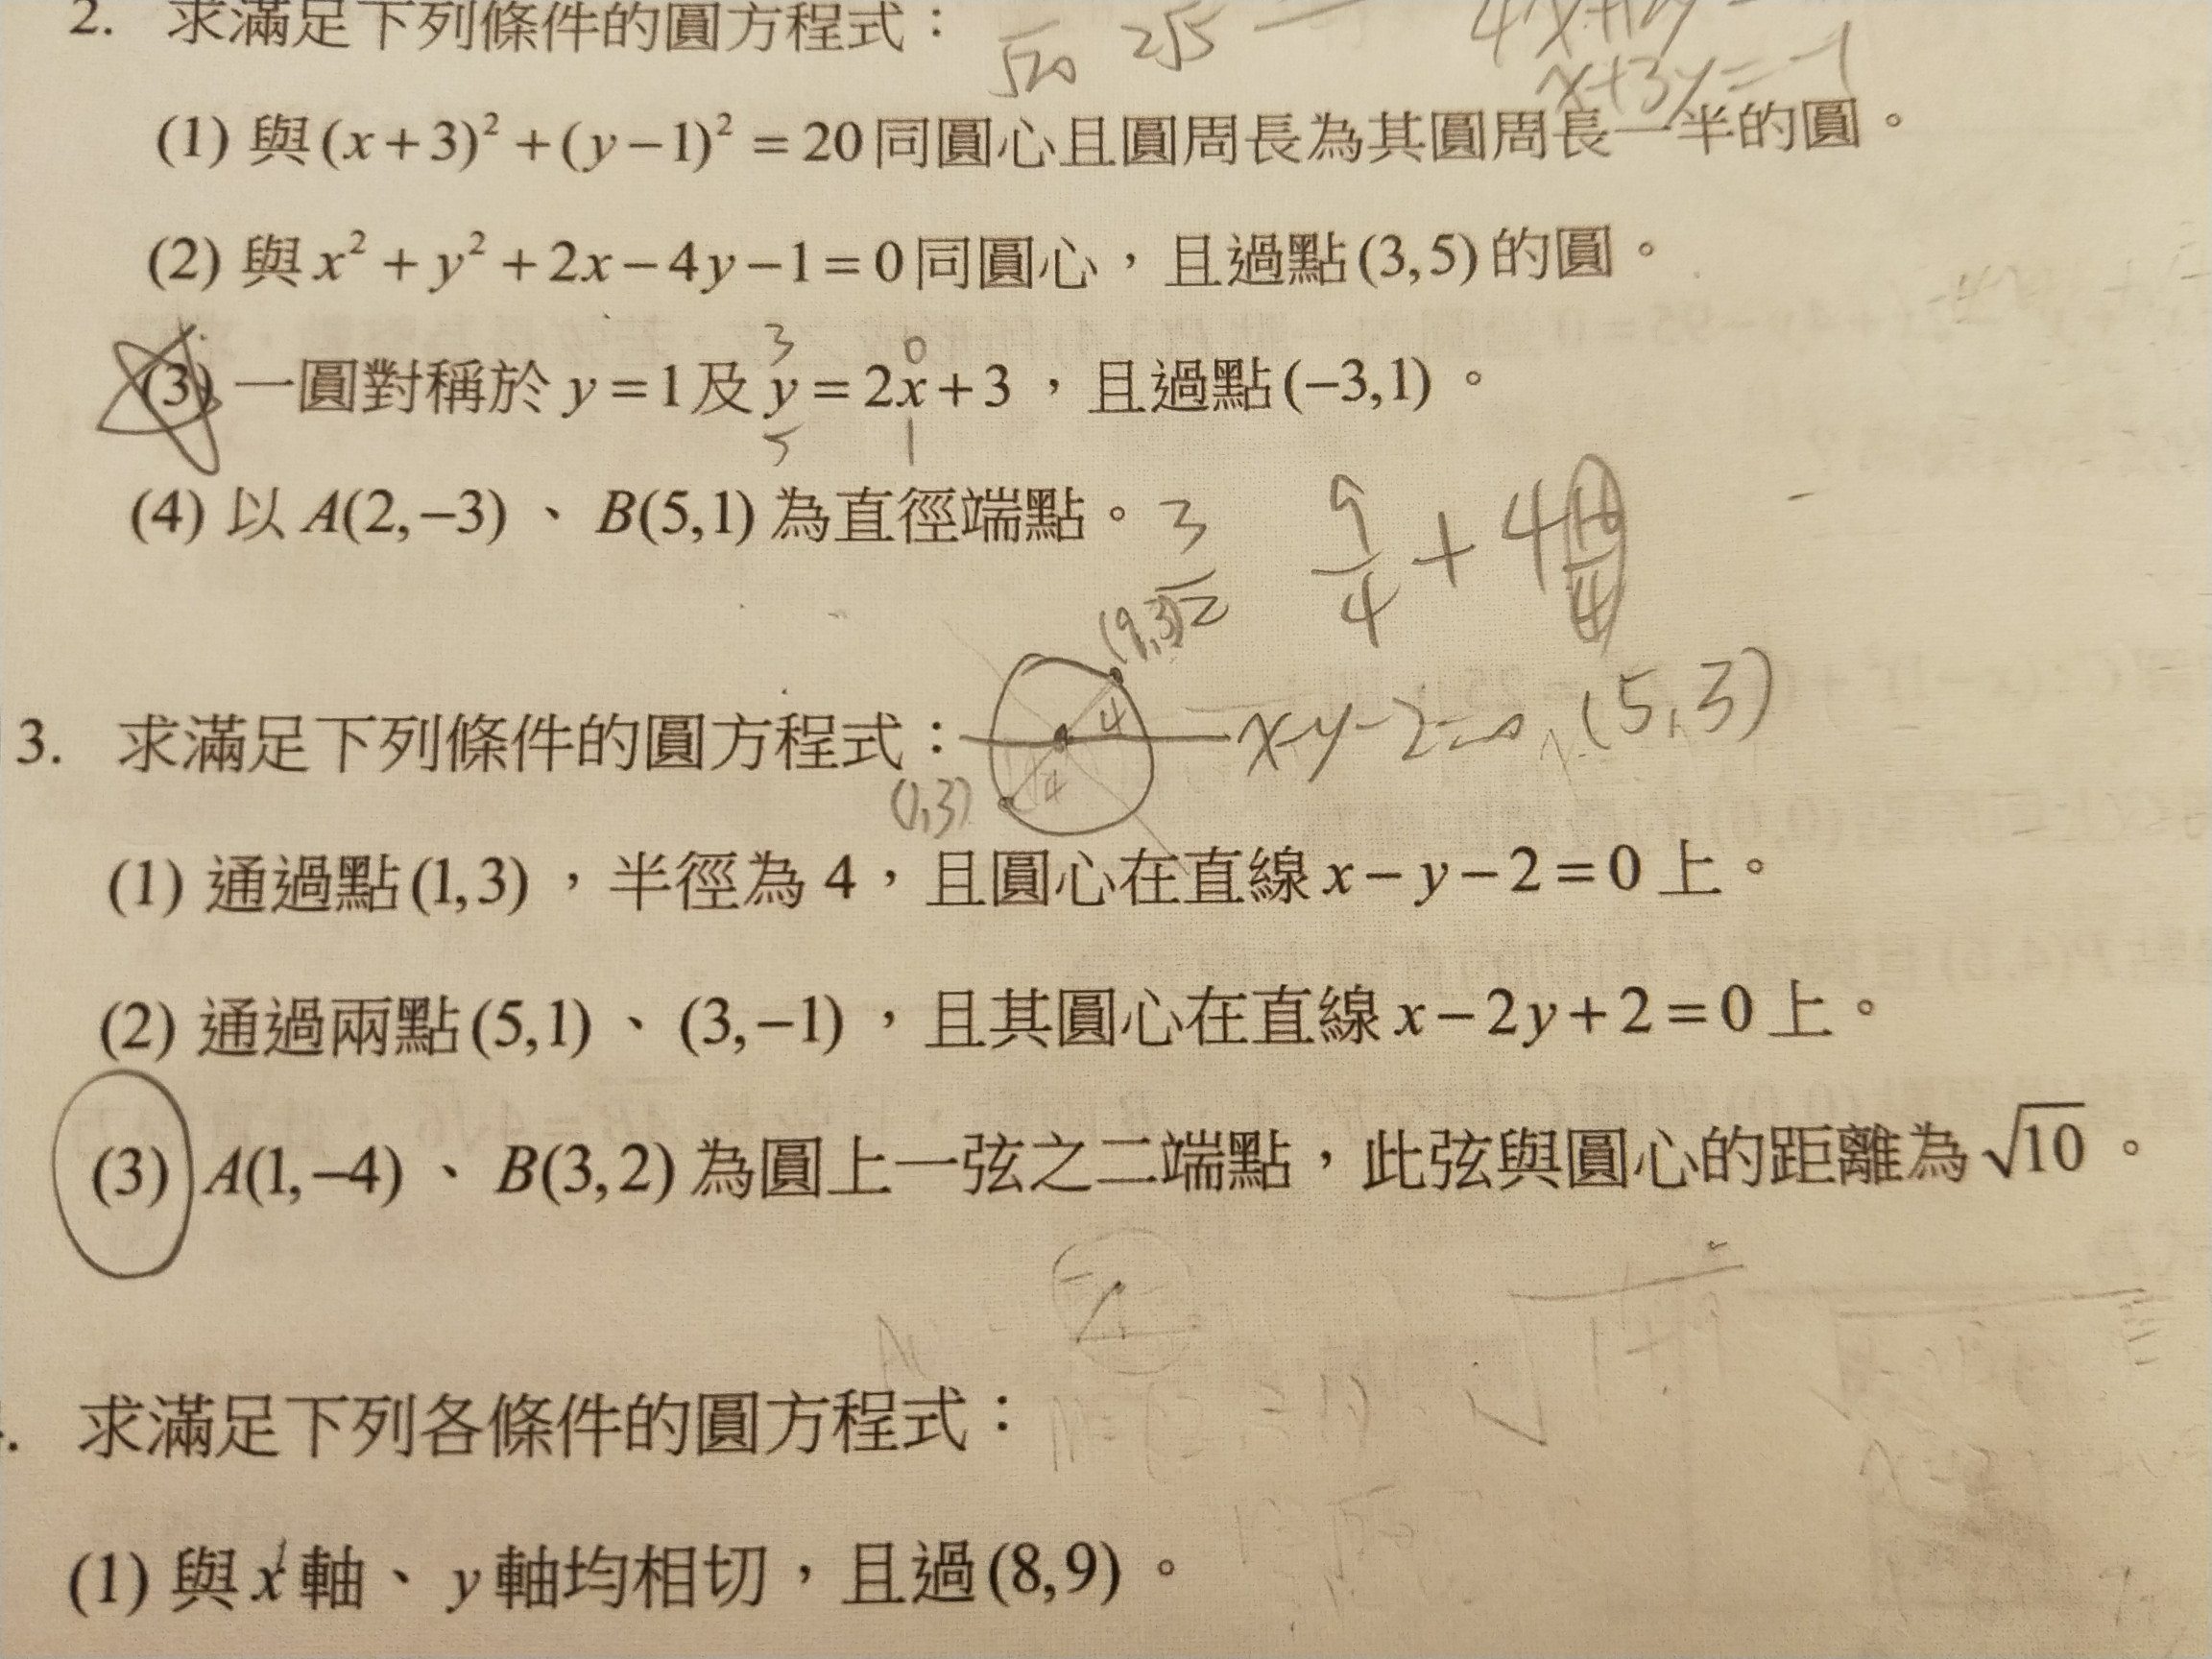 2. 求滿足下列條件的圓方程式：
√20 2√5
x+3y=-1
(1) 與(x+3)²+(y-1)²=20同圓心且圓周長為其圓周長一半的圓。
(2) 與x²+y²+2x-4y-1=0同圓心，且過點(3,5)的圓。
3 0
(3) 一圓對稱於y=1及y=2x+3，且過點(-3,1)。
5 1
(4) 以A(2,-3)、B(5,1)為直徑端點。
3/2 9/4+4
(9,3)
3. 求滿足下列條件的圓方程式：
4 x-y-2=0 (5,3)
(1,3) 4
(1) 通過點(1,3)，半徑為4，且圓心在直線x-y-2=0上。
(2) 通過兩點(5,1)、(3,-1)，且其圓心在直線x-2y+2=0上。
(3) A(1,-4)、B(3,2)為圓上一弦之二端點，此弦與圓心的距離為√10。
. 求滿足下列各條件的圓方程式：
(1) 與x軸、y軸均相切，且過(8,9)。